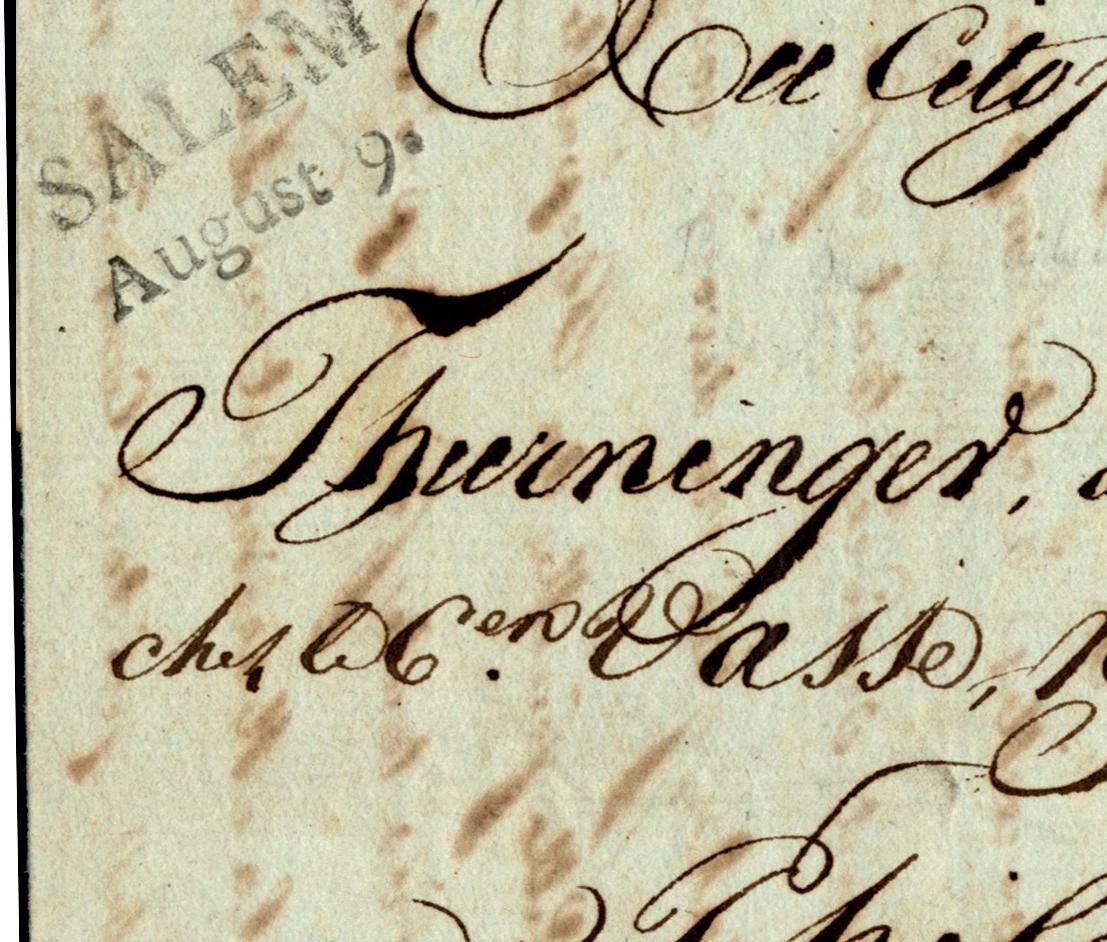 SALEM
August 9.
Au Citoy
Thurninger,
chez le C.en Passe,
Phil